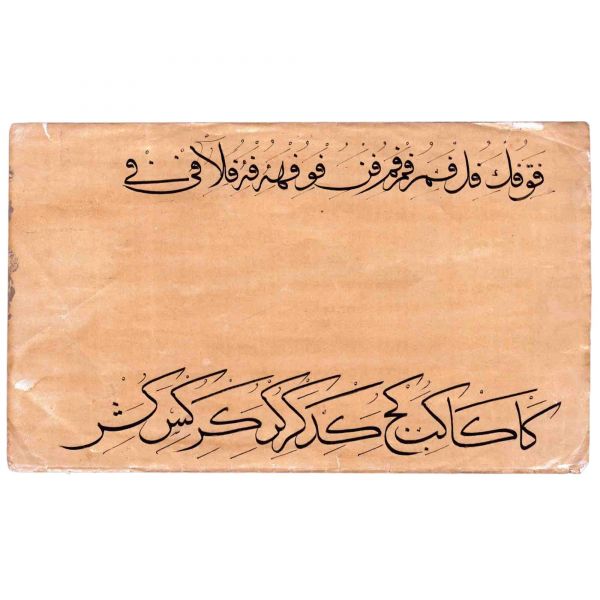 فق فك فل فم فم فم فن فو فه فه فلا فى فى
كا كا كب كج كد كر كر كر كس كش